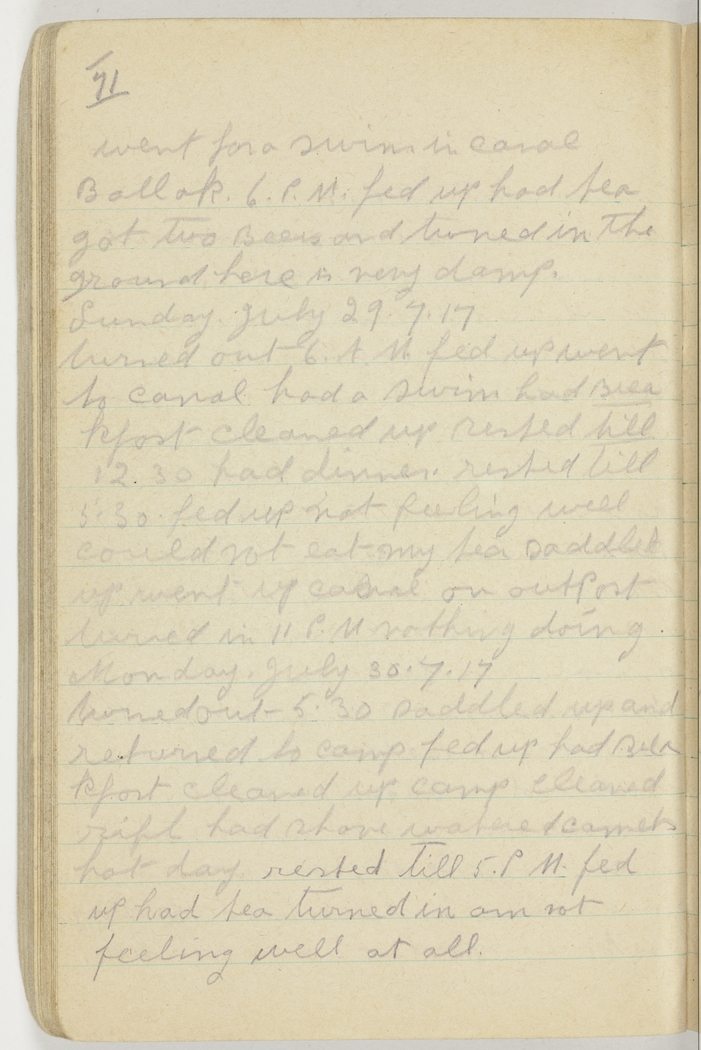 71
went for a swim in canal
Ballah. 6. P. M. fed up had tea
got two Beers and turned in The
ground here is very damp.
Sunday. July 29.7.17
turned out 6. A. M. fed up went
to canal had a swim had Brea
kfast cleaned up rested till
12.30 had dinner. rested till
5.30. fed up not feeling well
could not eat my tea saddled
up went up canal on outPost
turned in 11 P. M nothing doing.
Monday. July 30.7.17
turned out 5.30 saddled up and
returned to camp fed up had Brea
kfast cleaned up camp cleaned
rifl had shave watered camels
hot day rested Till 5. P M. fed
up had tea turned in am not
feeling well at all.